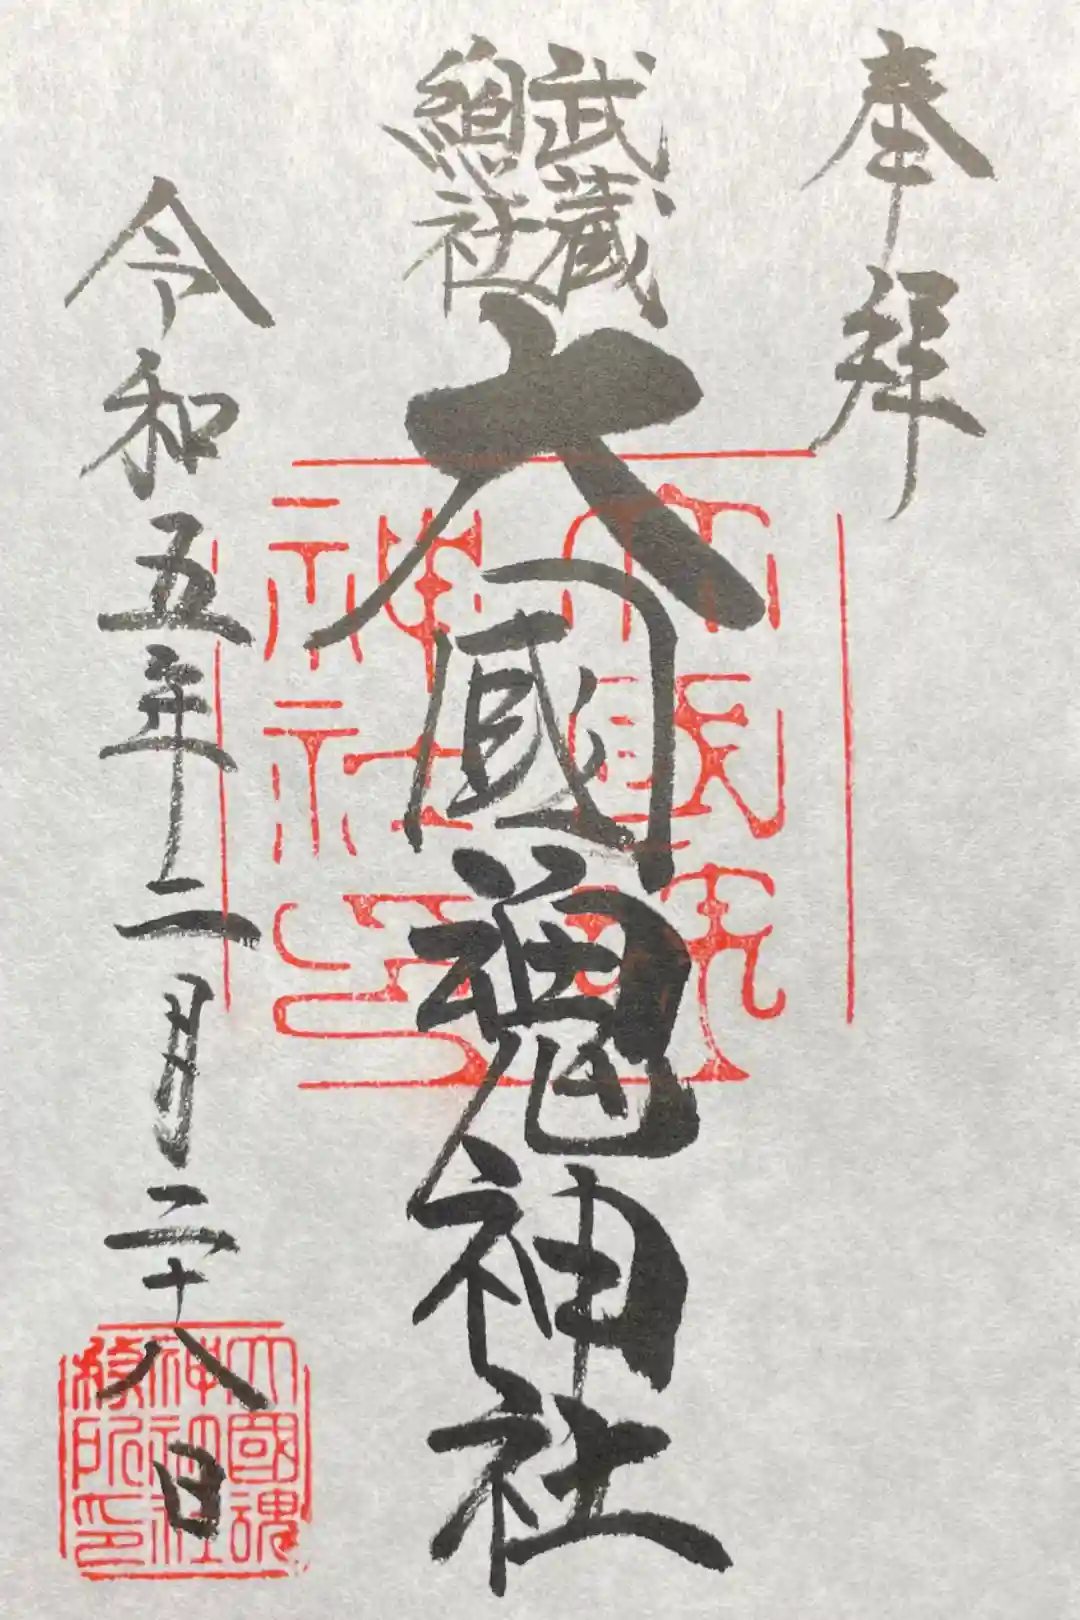 奉拝
武蔵
總社
大國魂神社
令和五年二月二十八日
大國魂
神社
印
大國魂
神社
務所印